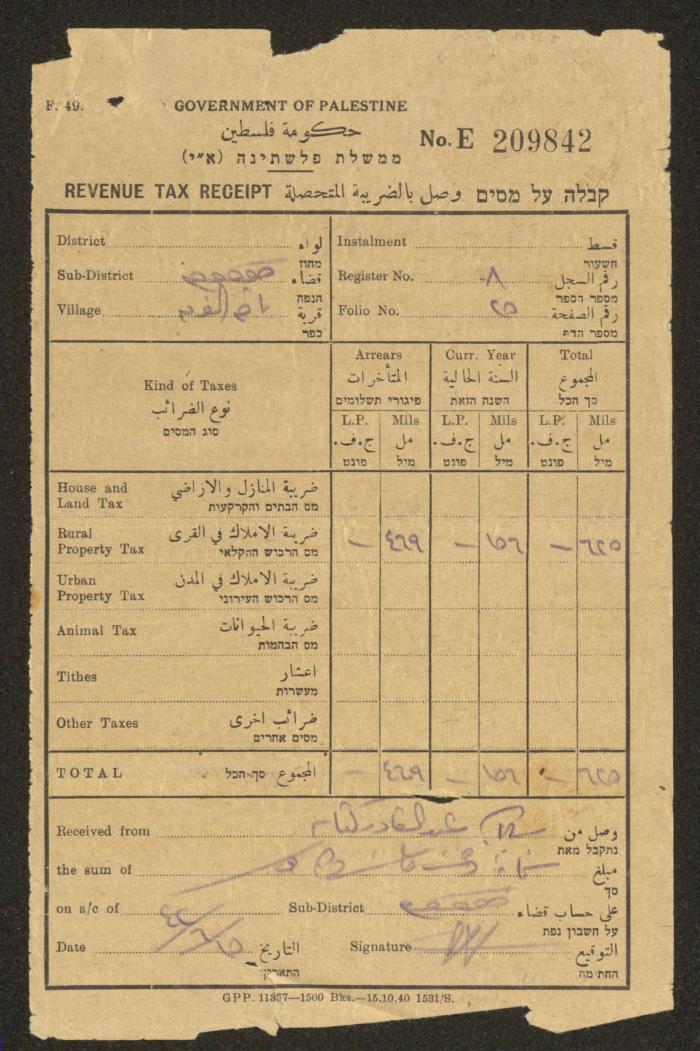 F. 49. GOVERNMENT OF PALESTINE
حكومة فلسطين
ממשלת פלשתינה (א״י)
No. E 209842
REVENUE TAX RECEIPT وصل بالضريبة المتحصلة קבלה על מסים
District لواء
מחוז
Sub-District قضاء
הנפה
Village قرية
כפר
Instalment قسط
תשעור
Register No. ٨ رقم السجل
מספר הספר
Folio No. ٢٥ رقم الصفحة
מספר הדף
Kind of Taxes
نوع الضرائب
סוג המסים
Arrears Curr. Year Total
المتأخرات السنة الحالية المجموع
פיגורי תשלומים השנה הזאת סך הכל
L.P. Mils L.P. Mils L.P. Mils
ج.ف. مل ج.ف. مل ج.ف. مل
פונט מיל פונט מיל פונט מיל
House and Land Tax ضريبة المنازل والاراضي
מס הבתים והקרקעות
Rural Property Tax ضريبة الاملاك في القرى — ٤٦٩ — ١٥٦ — ٦٢٥
מס הרכוש החקלאי
Urban Property Tax ضريبة الاملاك في المدن
מס הרכוש העירוני
Animal Tax ضريبة الحيوانات
מס הבהמות
Tithes اعشار
מעשרות
Other Taxes ضرائب اخرى
מסים אחרים
TOTAL المجموع סך הכל — ٤٦٩ — ١٥٦ — ٦٢٥
Received from عبد القادر وصل من
נתקבל מאת
the sum of مبلغ
סך
on a/c of Sub-District على حساب قضاء
על חשבון נפת
Date التاريخ Signature التوقيع
התאריך החתימה
GPP. 11337—1500 Bks.—15.10.40 1531/S.